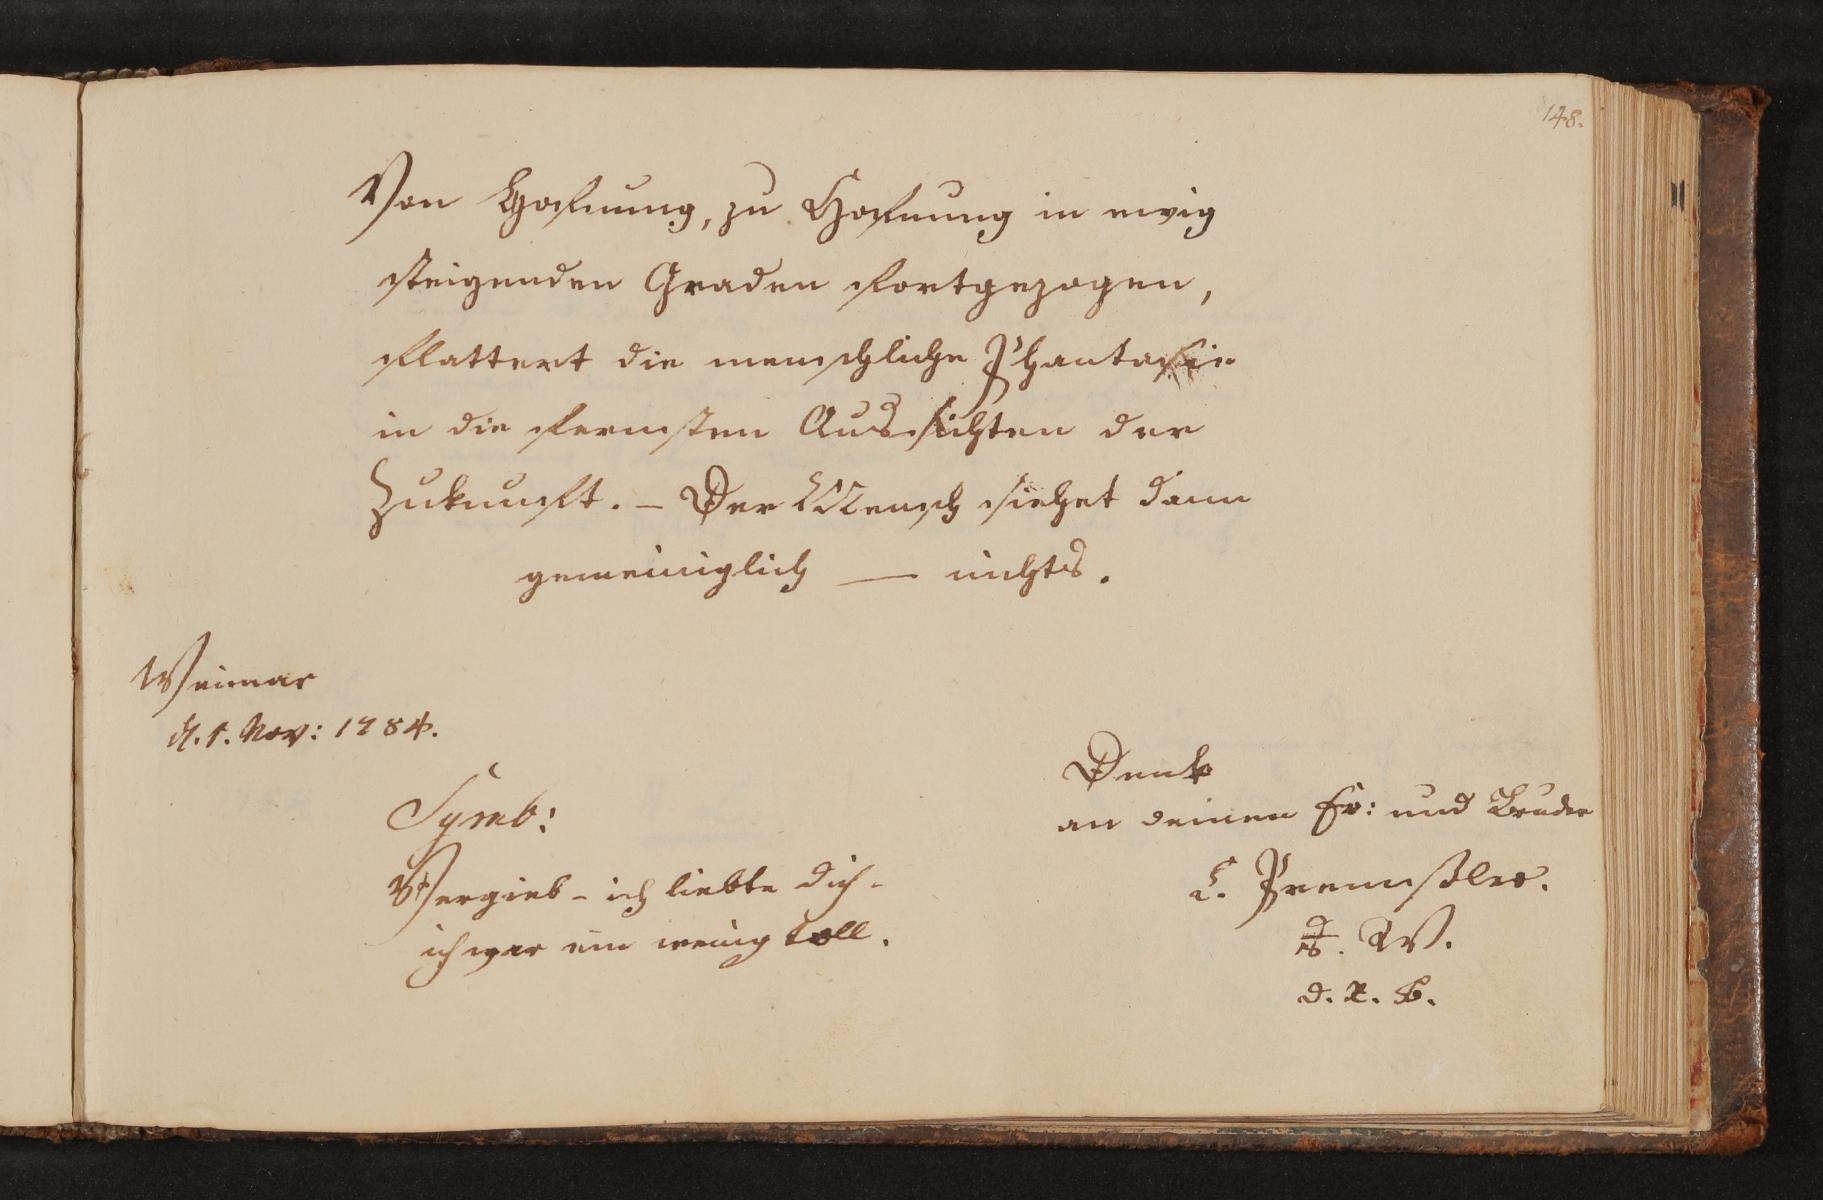 148.
Von Hofnung, zu Hofnung in ewig
steigenden Graden fortgezogen,
flattert die menschliche Phantasie
in die fernsten Aussichten der
Zukunft. – Der Mensch siehet dann
gemeiniglich — nichts.
Weimar
d. 1. Nov: 1784.
Symb:
Vergieb – ich liebte dich –
ich war ein wenig toll.
Denk
an deinen Fr: und Bruder
d. R. B.